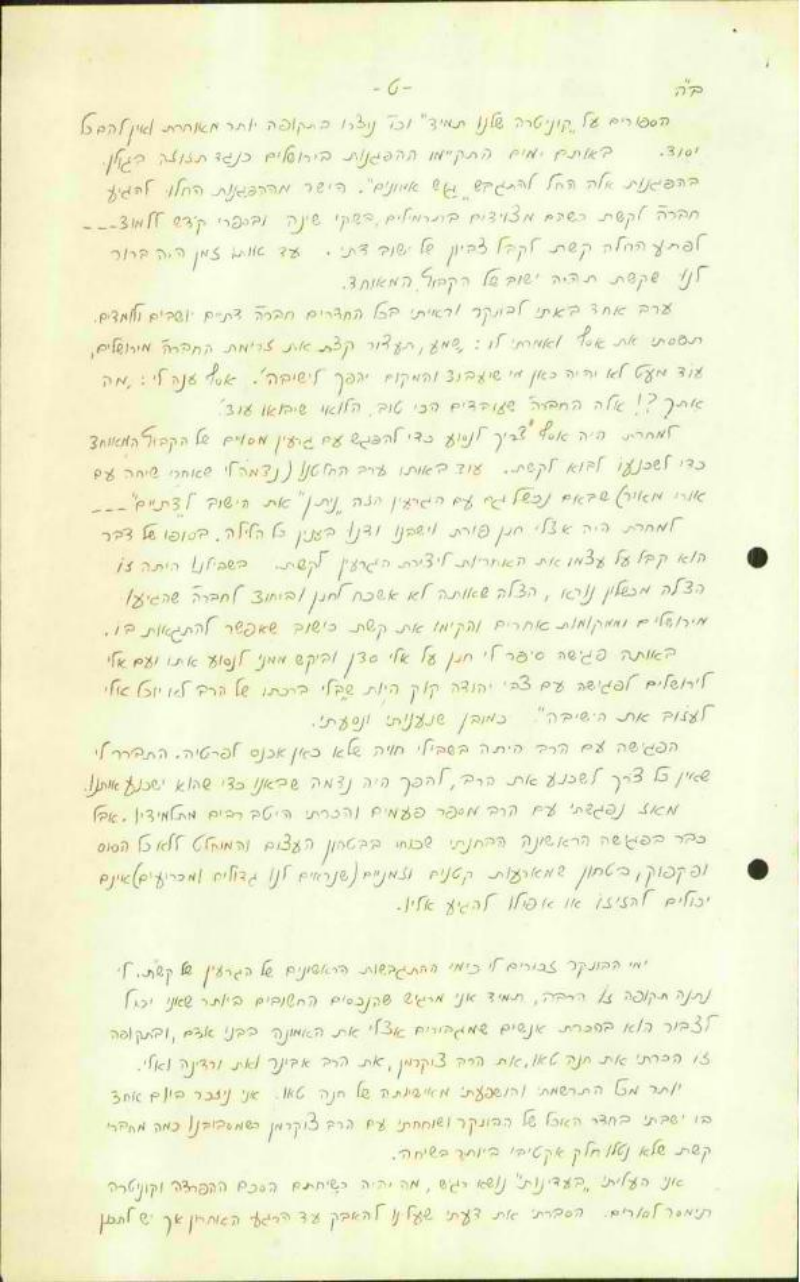 ב"ה
- ט -
הספורים על "קוניטרה שלנו תמיד" וכו' נוצרו בתקופה יותר מאוחרת ואין להם כל
יסוד. באותם ימים התקיימו ההפגנות בירושלים כנגד תזוזה בגולן.
בהפגנות אלה החל להתגבש "גוש אמונים". הישר מההפגנות החלו להגיע
חברה לקשת כשהם מצוידים בתרמילים, בשקי שינה ובספרי קודש ללמוד---
לפתע החלה קשת לקבל צביון של ישוב דתי. עד אותו זמן היה ברור
לנו שקשת תהיה ישוב של הקבוץ המאוחד.
ערב אחד באתי לבונקר וראיתי בכל החדרים חברה דתיים יושבים ולומדים.
תפסתי את אסף ואמרתי לו: "שמע, תעצור קצת את זרימת החברה מירושלים,
עוד מעט לא יהיה כאן מי שיעבוד והמקום יהפך לישיבה". אסף ענה לי: "מה
אתך?! אלה החברה שעובדים הכי טוב, הלואי שיבואו עוד".
למחרת היה אסף צריך לנסוע כדי להפגש עם גרעין מסוים של הקבוץ המאוחד
כדי לשכנעו לבוא לקשת. עוד באותו ערב החלטנו (נדמה לי שאחרי שיחה עם
אורי מאיר) שבאם נכשל גם עם הגרעין הזה "ניתן" את הישוב ל"דתיים"---
למחרת היה אצלי חנן פורת וישבנו ודנו בענין כל הלילה. בסופו של דבר
הוא קבל על עצמו את האחריות ליצירת הגרעין לקשת. בשבילנו היתה זו
הצלה מכשלון נורא, הצלה שאותה לא אשכח לחנן וביחוד לחברה שהגיעו
מירושלים וממקומות אחרים והקימו את קשת כישוב שאפשר להתגאות בו.
באותה פגישה סיפר לי חנן על אלי סדן וביקש ממני לנסוע אתו ועם אלי
לירושלים לפגישה עם צבי יהודה קוק היות ש"בלי ברכתו של הרב לא יוכל אלי
לעזוב את הישיבה". כמובן שנעניתי ונסעתי.
הפגישה עם הרב היתה בשבילי חויה שלא כאן אכנס לפרטיה. התברר לי
שאין כל צרך לשכנע את הרב, להפך היה נדמה שבאנו כדי שהוא ישכנע אותנו.
מאז נפגשתי עם הרב מספר פעמים והכרתי היטב רבים מתלמידיו. אבל
כבר בפגישה הראשונה הבחנתי שכוחו בבטחון העצום והמוחלט ללא כל הסוס
ופקפוק, בטחון שמארעות קטנים וזמניים (שנראים לנו גדולים ומכריעים) אינם
יכולים להזיזו או אפילו להגיע אליו.
ימי הבונקר זכורים לי כימי ההתגבשות הראשונים של הגרעין של קשת. לי
נתנה תקופה זו הרבה, תמיד אני מרגיש שהנכסים החשובים ביותר שאני יכול
לצבור הוא בהכרת אנשים שמגבירים אצלי את האמונה בבני אדם, ובתקופה
זו הכרתי את חנה טאו, את הרב צוקרמן, את הרב אבינר ואת ורדינה ואלי.
יותר מכל התרשמתי והושפעתי מאישיותה של חנה טאו. אני נזכר ביום אחד
בו ישבתי בחדר האוכל של הבונקר ושוחחתי עם הרב צוקרמן כשמסביבנו כמה מחברי
קשת שלא נטלו חלק אקטיבי ביותר בשיחה.
אני העליתי "בעדינות" נושא רגיש, מה יהיה כשיחתם הסכם ההפרדה וקוניטרה
תימסר לסורים. הסברתי את דעתי שעלינו להאבק עד הרגע האחרון אך יש לתכנן